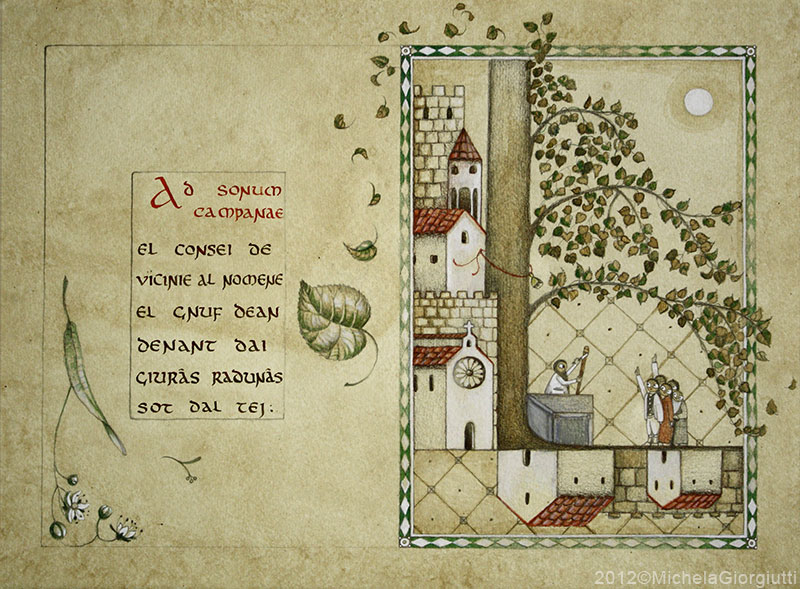 Ad sonum
campanae
el consei de
vicinie al nomene
el gnuf dean
denant dai
giuràs radunàs
sot dal tej:
2012©MichelaGiorgiutti